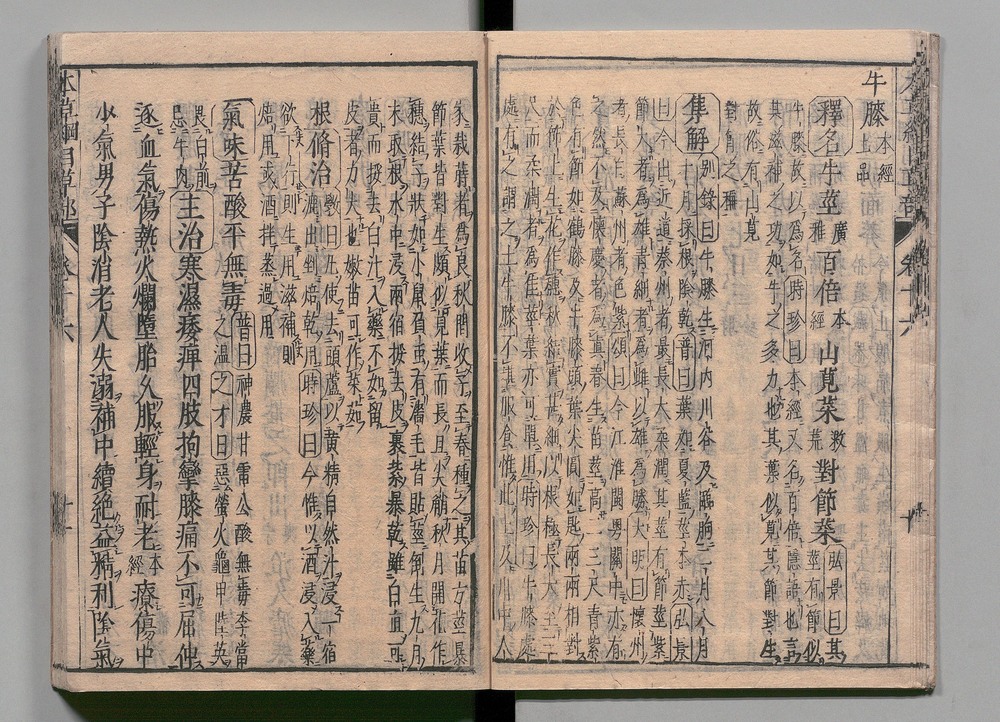 牛膝本經上品
釋名牛莖廣雅百倍本經山莧菜救荒對節菜弘景曰其莖有節似
牛膝故以爲名時珍曰本經又名百倍隱語也言
其滋補之功如牛之多力也其葉似莧其節對生
故俗有山莧
對節之稱
集解別錄曰牛膝生河内川谷及臨朐二月八月
十月採根陰乾普曰葉如夏藍莖本赤弘景
曰今出近道蔡州者最長大柔潤其莖有節莖紫
節大者爲雄青細者爲雌以雄爲勝大明曰懷州
者長白蘇州者色紫頌曰今江淮閩粤關中亦有
之然不及懷慶者爲真春生苗莖高二三尺青紫
色有節如鶴膝及牛膝頭葉尖圓如匙兩兩相對
於節上生花作穗秋結實甚細以根極長大至三
尺而柔潤者爲佳莖葉亦可單用時珍曰牛膝處
處有之謂之土牛膝不堪服食惟北土及川中人
家栽蒔者爲良秋間收子至春種之其苗方莖暴
節葉皆對生頗似莧葉而長且尖艄秋月開花作
穗結子狀如小鼠負蟲有濇毛皆貼莖倒生九月
末取根水中浸兩宿挼去皮裹紮暴乾雖白直可
貴而挼去白汁入藥不如留
皮者力大也嫩苗可作菜茹
根修治斅曰凡使去頭蘆以黃精自然汁浸一宿
漉出剉焙乾用時珍曰今惟以酒浸入藥
欲下行則生用滋補則
焙用或酒拌蒸過用
氣味苦酸平無毒普曰神農甘雷公酸無毒李當
之溫之才曰惡螢火龜甲陸英
畏白前
忌牛肉主治寒濕痿痺四肢拘攣膝痛不可屈伸
逐血氣傷熱火爛墮胎久服輕身耐老本經療傷中
少氣男子陰消老人失溺補中續絕益精利陰氣
本草綱目草部
卷十六